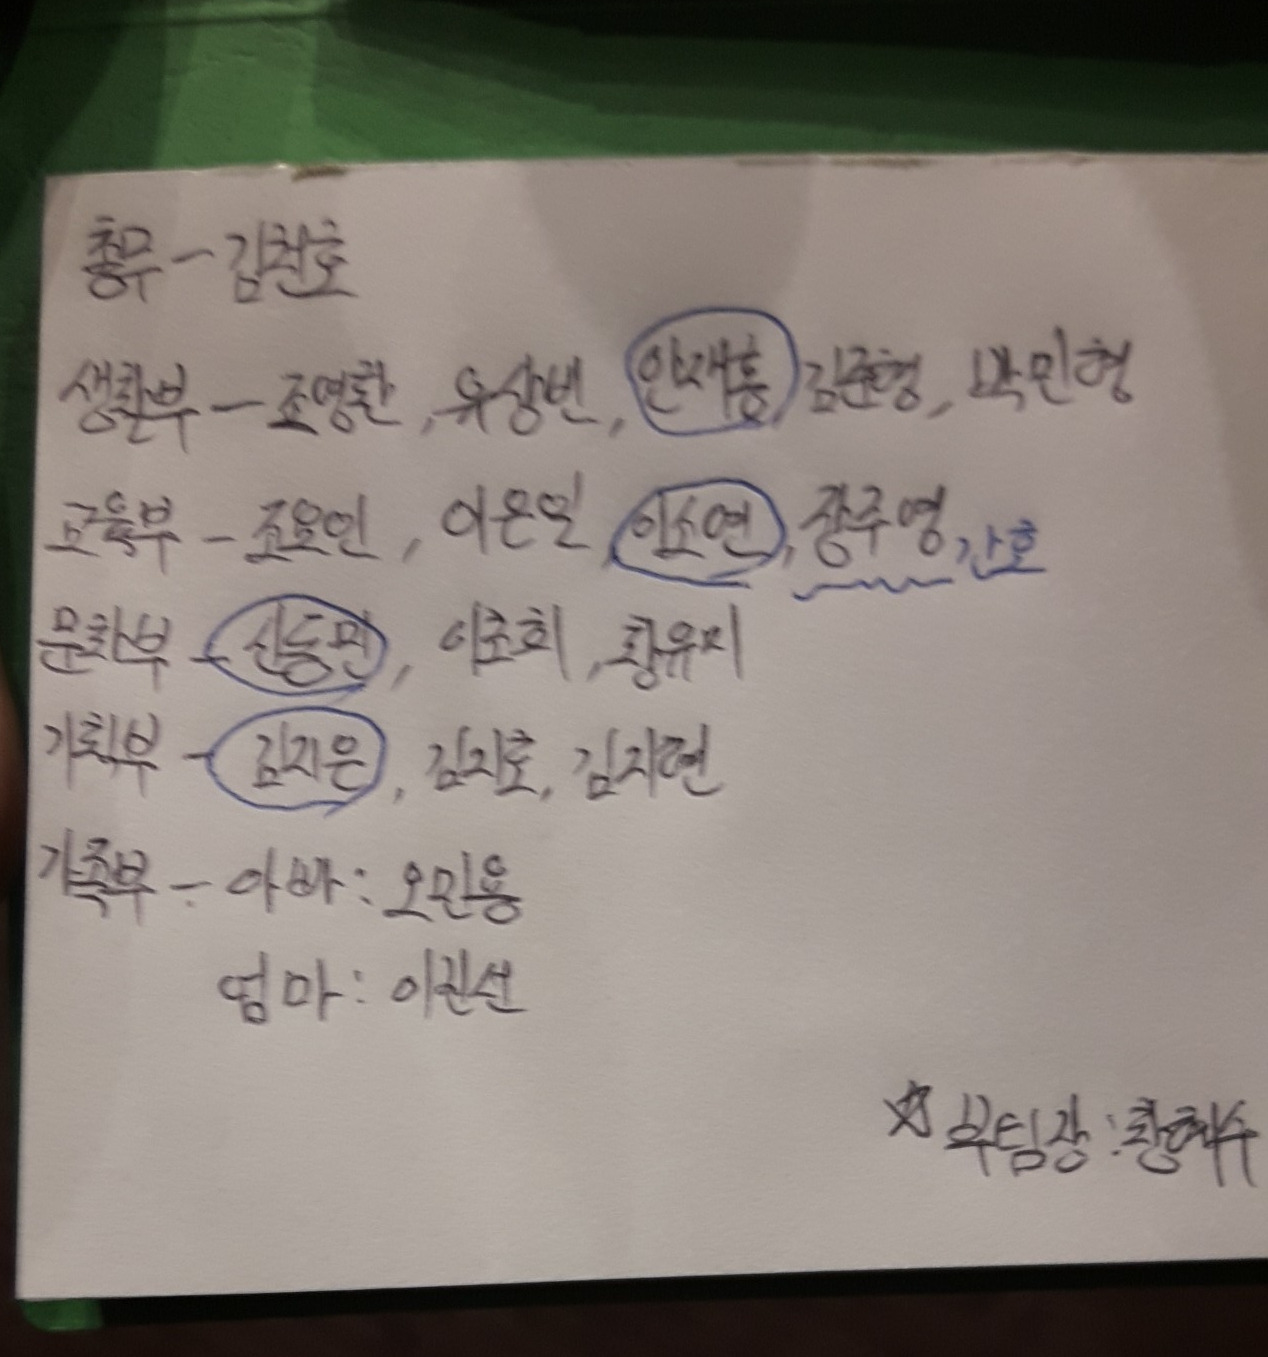 총무 - 김천호
생활부 - 조영환, 유상빈, 안재홍, 김준형, 박민형
교육부 - 조요인, 이은일, 이소연, 장주영, 간호
문화부 - 신동민, 이초희, 황유지
기획부 - 김지은, 김지호, 김지현
가족부 - 아빠: 오민용
엄마: 이진선
☆ 부팀장: 황혜수